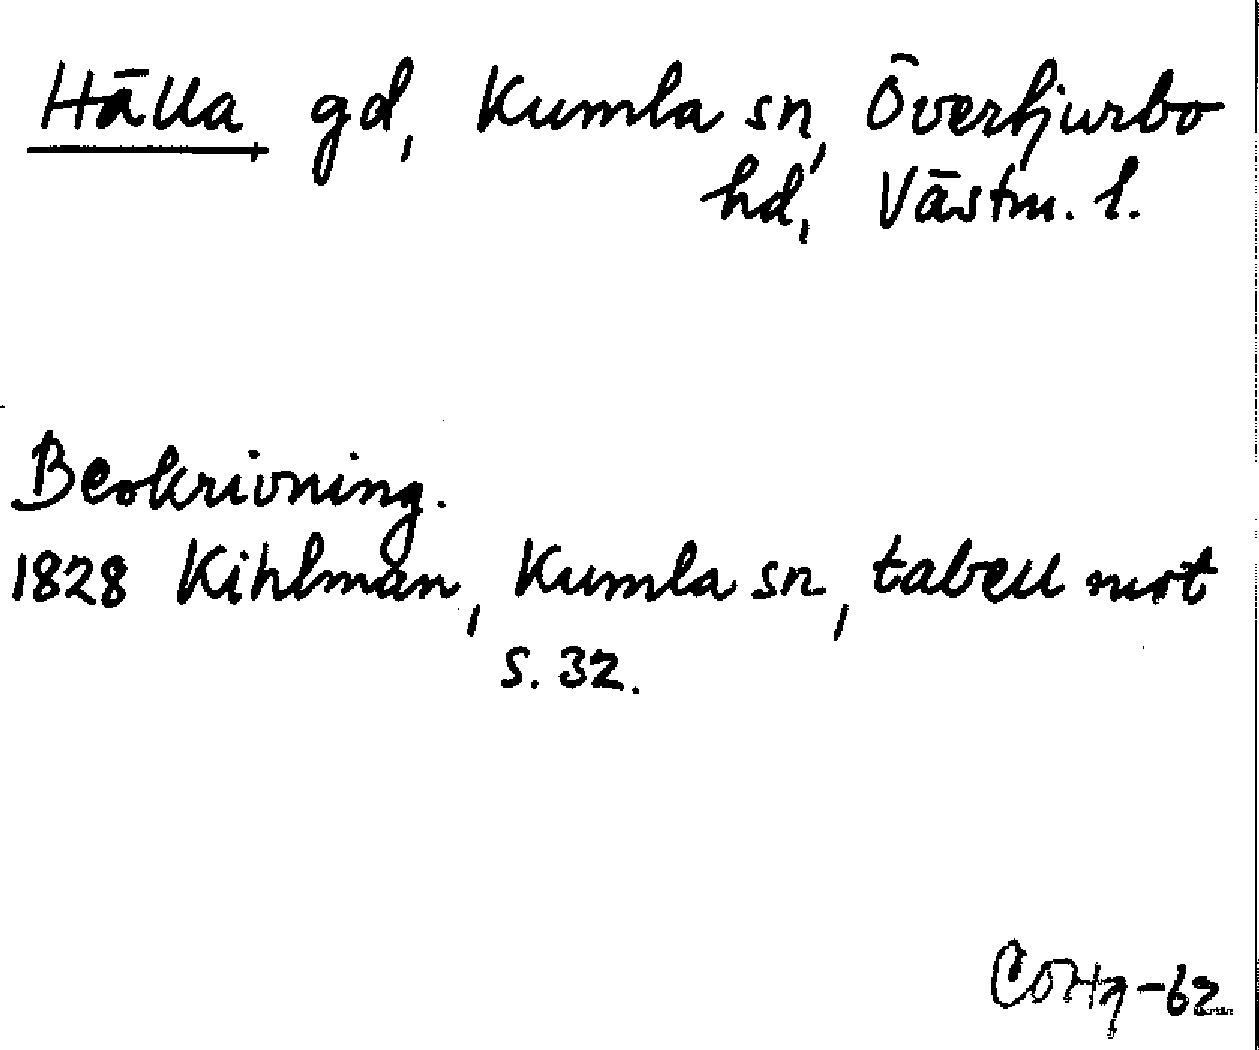 Hälla gd, Kumla sn, Övertjurbo
hd, Västm. l.
Beskrivning.
1828 Kihlman, Kumla sn, tabell mot
s. 32.